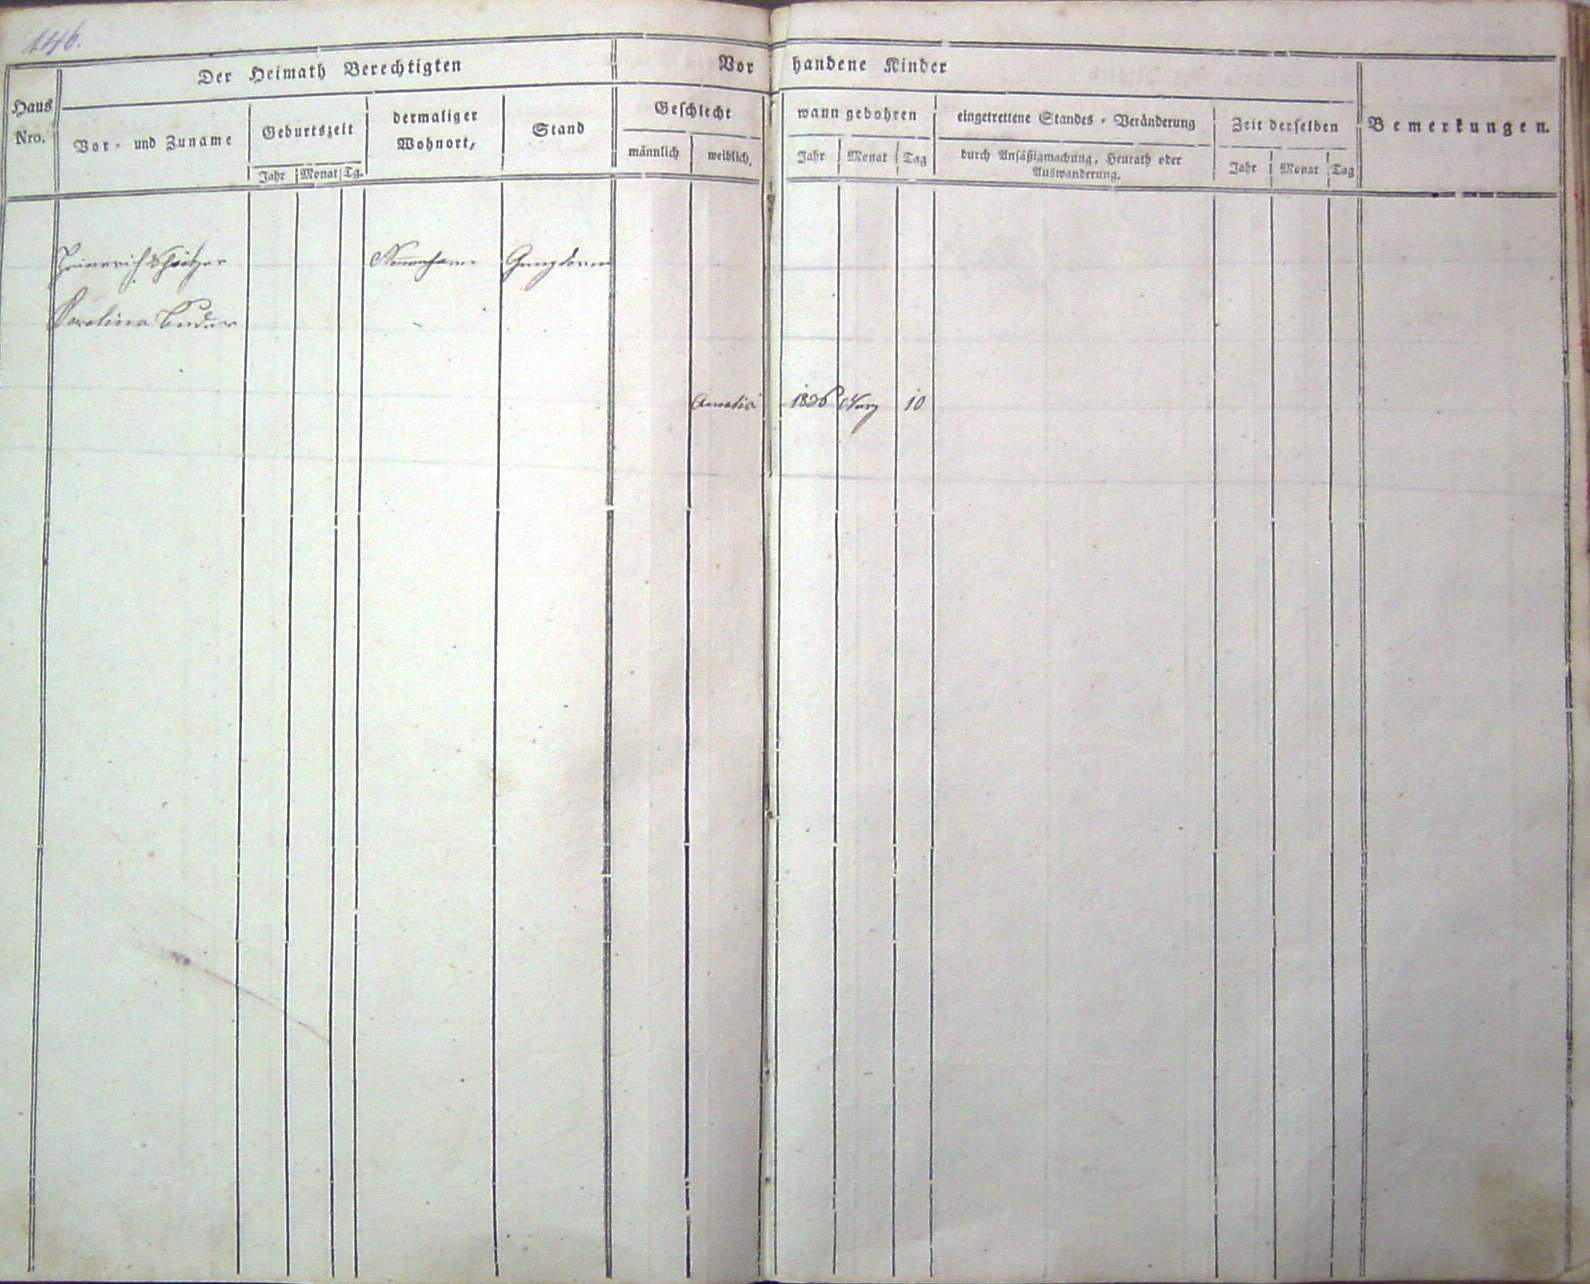 146.
Der Heimath Berechtigten
Vorhandene Kinder
Haus Nro.
Vor- und Zuname
Geburtszeit
Jahr Monat Tg.
dermaliger Wohnort,
Stand
Geschlecht
männlich weiblich,
wann gebohren
Jahr Monat Tag
eingetrettene Standes-Veränderung
durch Ansäßigmachung, Heurath oder
Auswanderung.
Zeit derselben
Jahr Monat Tag
Bemerkungen.
Heinrich
Karolina
Amalia 1836 März 10